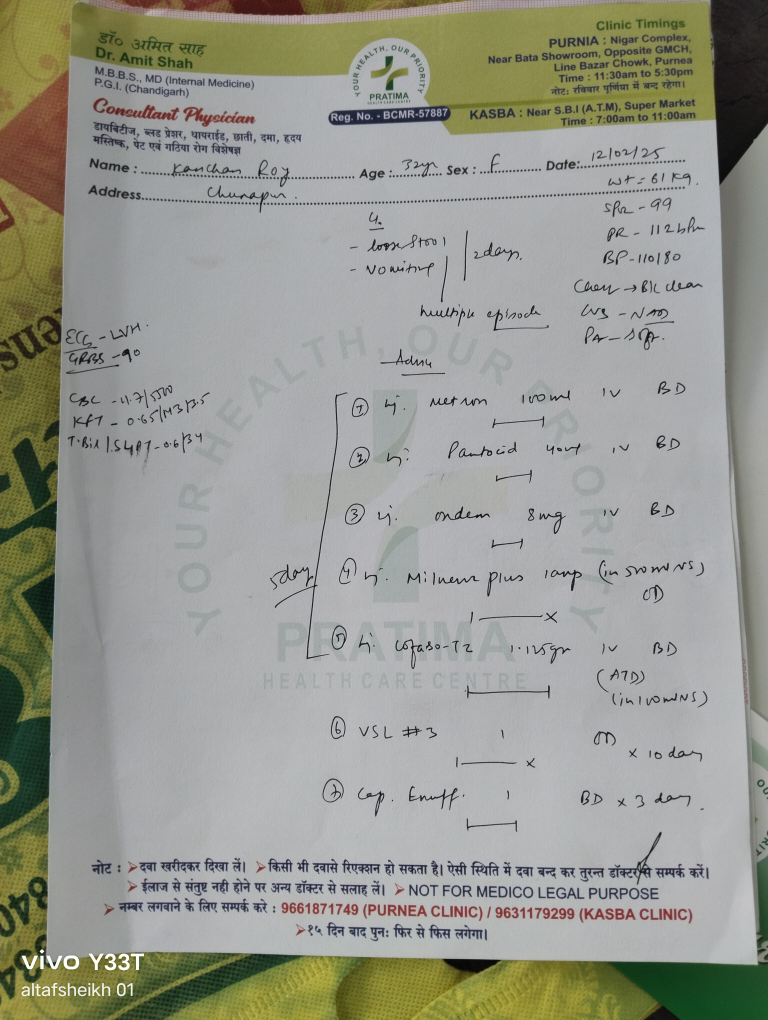 डॉ० अमित साह
Dr. Amit Shah
M.B.B.S., MD (Internal Medicine)
P.G.I. (Chandigarh)
Consultant Physician
डायबिटीज, ब्लड प्रेशर, थायराईड, छाती, दमा, हृदय
मस्तिष्क, पेट एवं गठिया रोग विशेषज्ञ
YOUR HEALTH, OUR PRIORITY
PRATIMA
HEALTH CARE CENTRE
Reg. No. - BCMR-57887
Clinic Timings
PURNIA : Nigar Complex,
Near Bata Showroom, Opposite GMCH,
Line Bazar Chowk, Purnea
Time : 11:30am to 5:30pm
नोट: रविवार पूर्णिया में बन्द रहेगा।
KASBA : Near S.B.I (A.T.M), Super Market
Time : 7:00am to 11:00am
Name : Kanchan Roy Age : 32yr Sex : F Date: 12/02/25
Address Chunapur.
wt = 61 kg.
SPO2 - 99
PR - 112 bpm
BP - 110/80
Chest → B/L clear
CVS - NAD
PA - Soft.
- loose stool
- Vomiting
2 days.
multiple episode
ECG - LVH.
GRBS - 90
CBC - 11.7/5500
KFT - 0.65/143/3.5
T.Bil/SGPT - 0.6/34
Adv
5 day
① Inj. Metron 100ml IV BD
② Inj. Pantocid 40mg IV BD
③ Inj. Ondem 8mg IV BD
④ Inj. plus 1amp (in 500ml NS)
OD
⑤ Inj. Cofaso-TZ 1.125gm IV BD
(ATD)
(in 100ml NS)
⑥ VSL #3 1 OD
x 10 day
⑦ Cap. Enuff. 1 BD x 3 day.
YOUR HEALTH, OUR PRIORITY
PRATIMA
HEALTH CARE CENTRE
नोट : ➤दवा खरीदकर दिखा लें। ➤किसी भी दवासे रिएक्शन हो सकता है। ऐसी स्थिति में दवा बन्द कर तुरन्त डॉक्टर से सम्पर्क करें।
➤ईलाज से संतुष्ट नही होने पर अन्य डॉक्टर से सलाह लें। ➤NOT FOR MEDICO LEGAL PURPOSE
➤नम्बर लगवाने के लिए सम्पर्क करे : 9661871749 (PURNEA CLINIC) / 9631179299 (KASBA CLINIC)
➤१५ दिन बाद पुनः फिर से फिस लगेगा।
vivo Y33T
altafsheikh 01